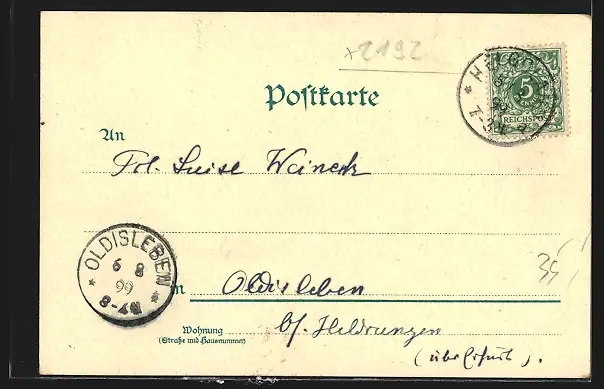 x2192
HELGO
5
REICHSPOST
7-8N
Postkarte
An
Frl. Luise Waineck
OLDISLEBEN
6 8
99
8-4N
in Oldisleben
Wohnung
(Straße und Hausnummer)
b/. Heldrungen
(über Erfurt).
35